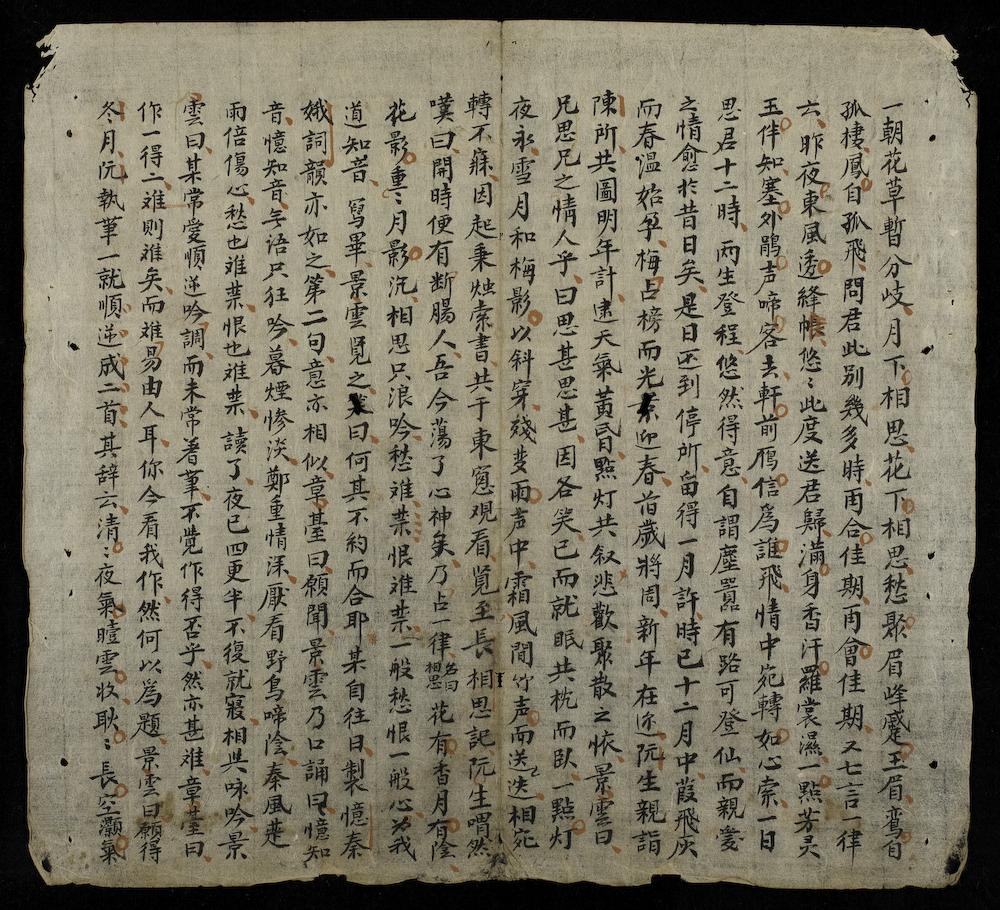 一朝花草暫分岐月下相思花下相思愁聚眉峰蹙玉眉鸞自
孤棲鳳自孤飛問君此別幾多時再合佳期再會佳期又七言一律
云昨夜東風透絳帳悠〻此度送君歸滿身香汗羅裳濕一點芳灵
玉伴知塞外鵑声啼客去軒前鴈信爲誰飛情中宛轉如心索一日
思君十二時兩生登程悠然得意自謂塵囂有路可登仙而親愛
之情愈於昔日矣是日还到停所留得一月許時已十二月中葭飛灰
而春温始孕梅占榜而光景迎春首歲將周新年在近阮生親詣
陳所共圖明年計逮天氣黃昏點灯共叙悲歡聚散之懷景雲曰
兄思兄之情人乎曰思甚思甚因各笑已而就眠共枕而臥一點灯
夜永雪月和梅影以斜穿殘更雨声中霜風間竹声而送迭相宛
轉不寐因起秉烛索書共于東窓观看覧至長相思記阮生喟然
嘆曰開時便有断腸人吾今蕩了心神矣乃占一律名曰相思花有香月有陰
花影重〻月影沉相思只浪吟愁难禁恨难禁一般愁恨一般心为我
道知音寫畢景雲覓之笑曰何其不約而合耶某自往日製憶秦
娥詞韻亦如之第二句意亦相似章臺曰願聞景雲乃口誦曰憶知
音憶知音无语只狂吟暮煙惨淡鄭重情深厭看野鸟啼陰秦風楚
雨倍傷心愁也难禁恨也难禁讀了夜已四更半不復就寢相與咏吟景
雲曰某常愛順逆吟調而未常着筆不覺作得否乎然亦甚难章臺曰
作一得二难則难矣而难易由人耳你今看我作然何以爲題景雲曰願得
冬月阮執筆一就順逆成二首其辞云清〻夜氣曀雲收耿〻長空灝氣